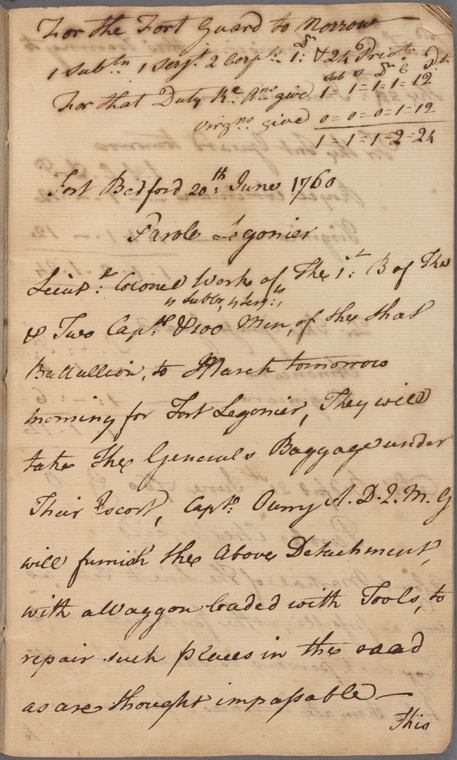 For the Fort Guard to Morrow
1 Subtn 1 Serjt 2 Corpls 1: Dr & 24 Privts
Sub S Dr C Pt
For that Duty Rl Ans give 1 = 1 = 1 = 1 = 12
Virgns give 0 = 0 = 0 = 1 = 12
1 = 1 = 1 = 2 = 24
Fort Bedford 20th: June 1760
Parole Legonier
Lieut: Colonel Work of The 1st: B of The
4 Subbs, 4 Serjts,
& Two Capts & 100 Men, of the that
Battallion, to March tomorrow
morning for Fort Legonier, They will
take The Generals Baggage under
Their Escort, Captn Ourry A. D. Q. M. G
will furnish the Above Detachment,
with a Waggon loaded with Tools, to
repair such places in the roaad
as are thought impassable —
This